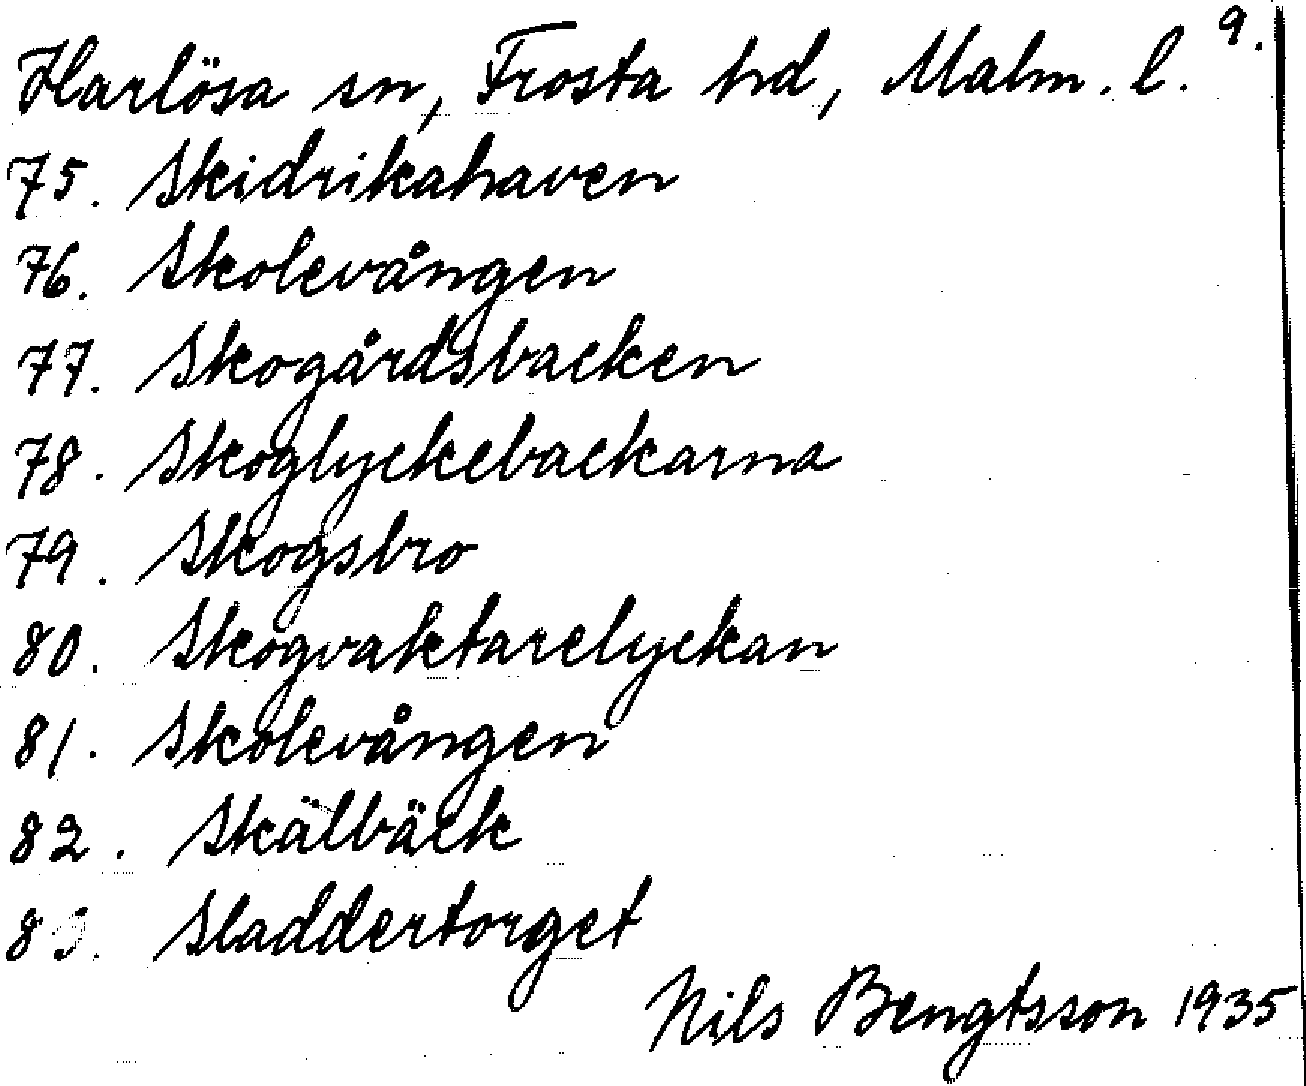 Harlösa sn, Frosta hd, Malm. l. 9.
75. Skidrikahaven
76. Skolevången
77. Skogårdsbacken
78. Skoglyckebackarna
79. Skogsbro
80. Skogvaktarelyckan
81. Skolevången
82. Skälbäck
83. Sladdertorget
Nils Bengtsson 1935